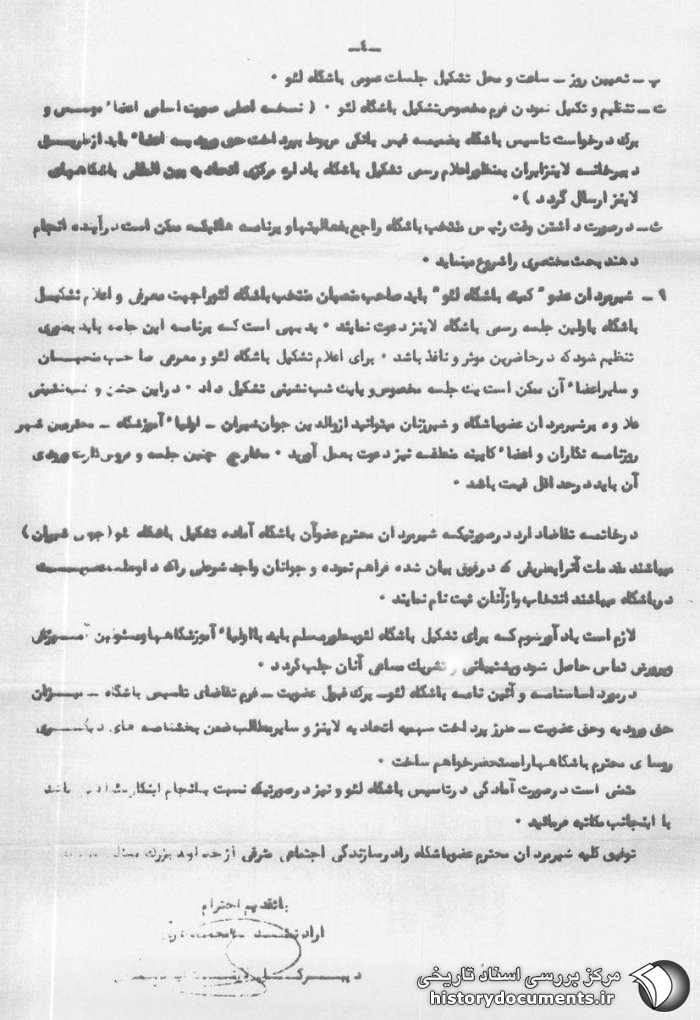 ـ ٤ ـ
پ ـ تعیین روز ـ ساعت و محل تشکیل جلسات عمومی باشگاه لئو ۰
ت ـ تنظیم و تکمیل نمودن فرم مخصوص تشکیل باشگاه لئو ۰ ( نسخه اصلی صورت اسامی اعضاء موسس و
برگ درخواست تاسیس باشگاه بضمیمه فیش بانکی مربوط بپرداخت حق ورودیه اعضاء باید از طریق
دبیرخانه لاینز ایران بمنظور اعلام رسمی تشکیل باشگاه باداره مرکزی اتحادیه بین المللی باشگاههای
لاینز ارسال گردد )۰
ث ـ در صورت داشتن وقت رئیس منتخب باشگاه راجع بفعالیتها و برنامه هائیکه ممکن است در آینده انجام
دهند بحث مختصری را شروع مینماید ۰
۹ ـ شیرمردان عضو " کمیته باشگاه لئو " باید صاحب منصبان منتخب باشگاه لئو را جهت معرفی و اعلام تشکیل
باشگاه باولین جلسه رسمی باشگاه لاینز دعوت نمایند ۰ بدیهی است که برنامه این جلسه باید بطوری
تنظیم شود که در حاضرین موثر و نافذ باشد ۰ برای اعلام تشکیل باشگاه لئو و معرفی صاحب منصبان
و سایر اعضاء آن ممکن است یک جلسه مخصوص و یا یک شب نشینی تشکیل داد ۰ در این جشن و شب نشینی
علاوه بر شیرمردان عضو باشگاه و شیرزنان میتوانید از والدین جوان شیران ـ اولیاء آموزشگاه ـ محترمین شهر
روزنامه نگاران و اعضاء کابینه منطقه نیز دعوت بعمل آورید ۰ مخارج چنین جلسه و فروش کارت ورودی
آن باید در حد اقل قیمت باشد ۰
در خاتمه تقاضا دارد در صورتیکه شیرمردان محترم عضو آن باشگاه آماده تشکیل باشگاه لئو ( جوان شیران )
میباشند مقدمات آنرا بطریقی که در فوق بیان شده فراهم نموده و جوانان واجد شرطی را که داوطلب عضویت
در باشگاه میباشند انتخاب و از آنان ثبت نام نمایند ۰
لازم است یادآور شوم که برای تشکیل باشگاه لئو بطور مسلم باید با اولیاء آموزشگاهها و مسئولین آموزش
و پرورش تماس حاصل شود و پشتیبانی و تشریک مساعی آنان جلب گردد ۰
در مورد اساسنامه و آئین نامه باشگاه لئو ـ برگ قبول عضویت ـ فرم تقاضای تاسیس باشگاه ـ میزان
حق ورودیه و حق عضویت ـ طرز پرداخت سهمیه اتحادیه لاینز و سایر مطالب ضمن بخشنامه های دیگری
روسای محترم باشگاهها را مستحضر خواهم ساخت ۰
متمنی است در صورت آمادگی در تاسیس باشگاه لئو و نیز در صورتیکه نسبت بانجام ابتکار
با اینجانب مکاتبه فرمائید ۰
توفیق کلیه شیرمردان محترم عضو باشگاه را در سازندگی اجتماعی مترقی از خداوند بزرگ مسئلت
با تقدیم احترام
ارادتمند
مرکز بررسی اسناد تاریخی
historydocuments.ir